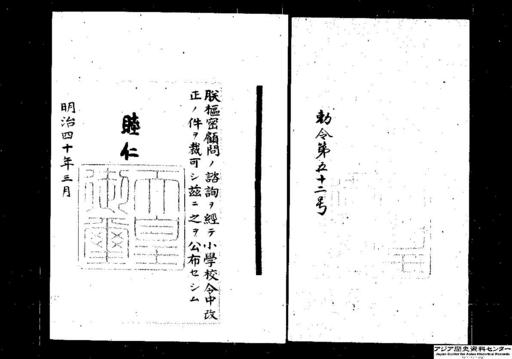 勅令第五十二号
朕樞密顧問ノ諮詢ヲ經テ小學校令中改
正ノ件ヲ裁可シ茲ニ之ヲ公布セシム
睦仁
天皇
御璽
明治四十年三月
アジア歴史資料センター
Japan Center for Asian Historical Records